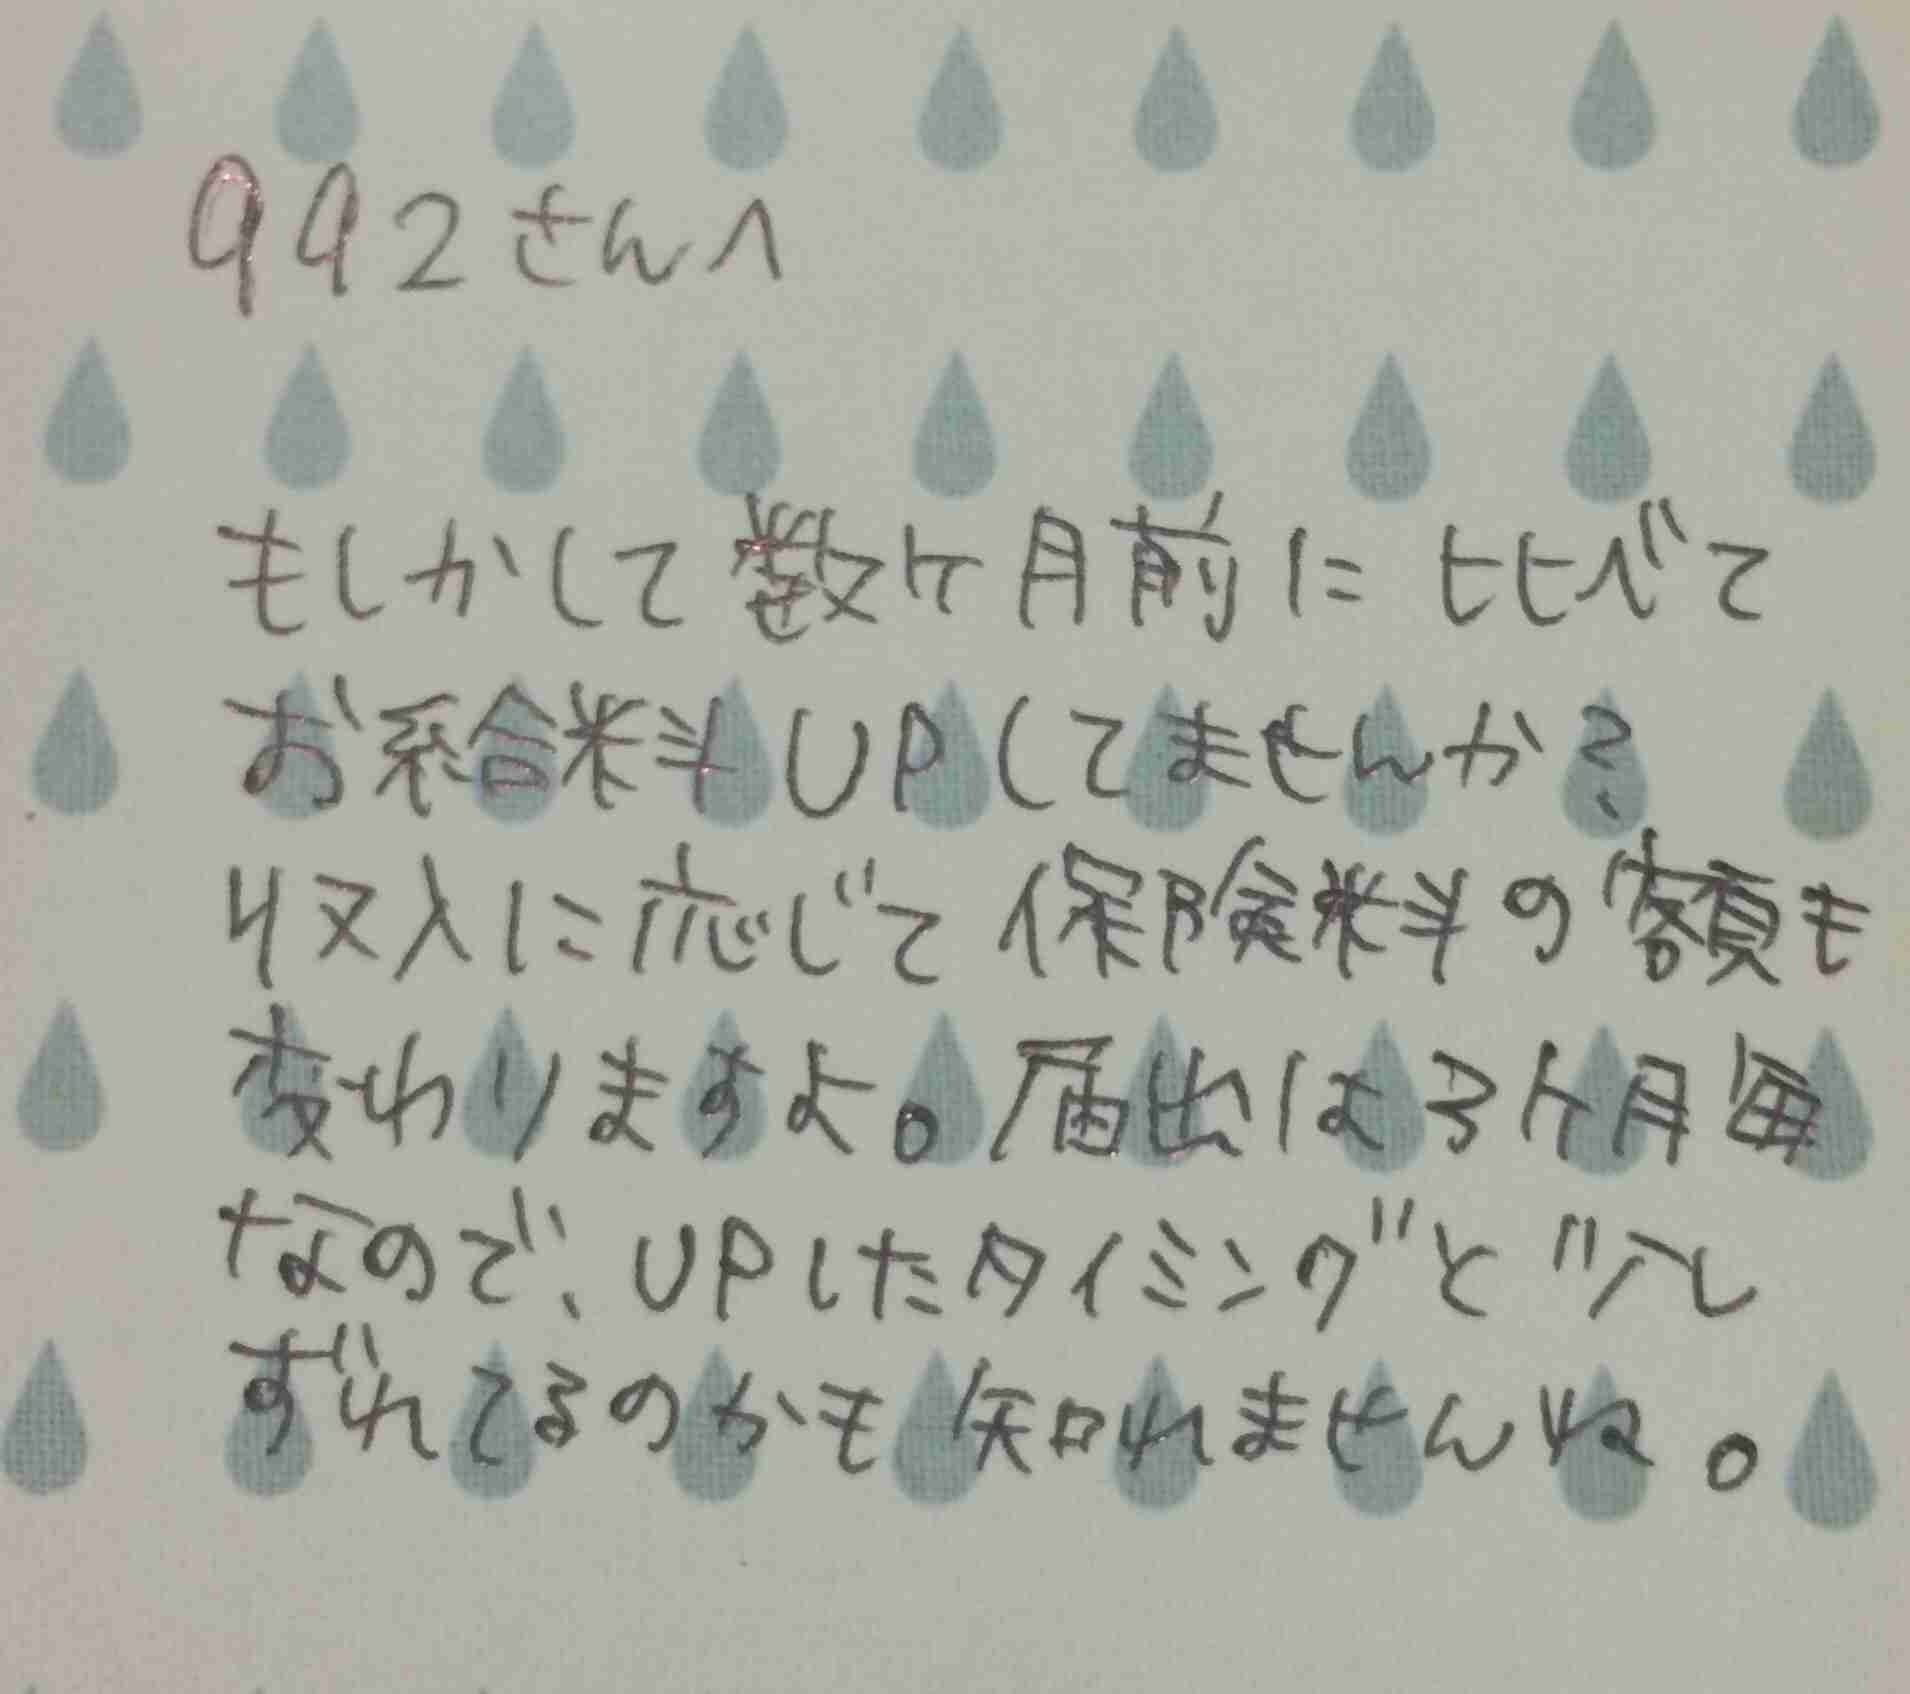 992さんへ
もしかして数ヶ月前に比べて
お給料UPしてませんか?
収入に応じて保険料の額も
変わりますよ。届出は3ヶ月毎
なので、UPしたタイミングと少し
ずれてるのかも知れませんね。